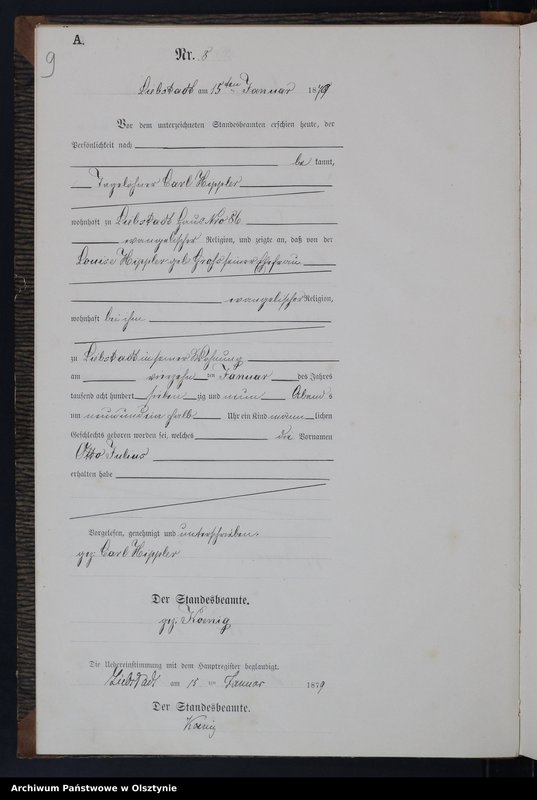 A.
9
Nr. 8
Liebstadt am 15 ten Januar 1879
Vor dem unterzeichneten Standesbeamten erschien heute, der
Persönlichkeit nach
be kannt,
Tagelöhner Carl Hippler
wohnhaft zu Liebstadt Haus Nro 86
evangelischer Religion, und zeigte an, daß von der
Louise Hippler geb. Groß seiner Ehefrau
evangelischer Religion,
wohnhaft bei ihm
zu Liebstadt in seiner Wohnung
am vierzehn ten Januar des Jahres
tausend acht hundert sieben zig und neun Abend s
um neun und ein halb Uhr ein Kind männ lichen
Geschlechts geboren worden sei, welches die Vornamen
Otto Julius
erhalten habe
Vorgelesen, genehmigt und unterschrieben.
gez. Carl Hippler
Der Standesbeamte.
gez. Koenig
Die Uebereinstimmung mit dem Hauptregister beglaubigt.
Liebstadt am 15 ten Januar 1879
Der Standesbeamte.
Koenig
Archiwum Państwowe w Olsztynie